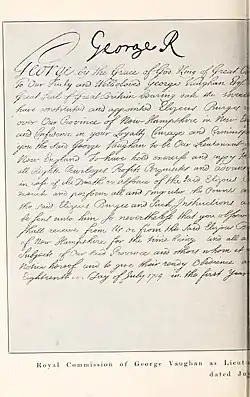 George R
George by the Grace of God King of Great
To Our Trusty and Welbeloved George Vaughan Esqr
Great Seal of Great Britain bearing date the
have constituted and appointed Elizeus Burges
over Our Province of New Hampshire in New
and Confidence in your Loyalty Courage and
you the said George Vaughan to be Our Lieutenant
New England To have hold exercise and enjoy
all Rights Priviledges Profits Perquisites and
in case of the Death or absence of the said Elizeus
and perform all and singular the Powers
the said Elizeus Burges and Such Instructions as
be sent unto him So nevertheless that you
shall receive from Us or from the said Elizeus
of New Hampshire for the time being and all
Subjects of Our said Province and others whom
Notice hereof and to give their ready Obedience
Eighteenth Day of July in the first Year
Royal Commission of George Vaughan as
dated